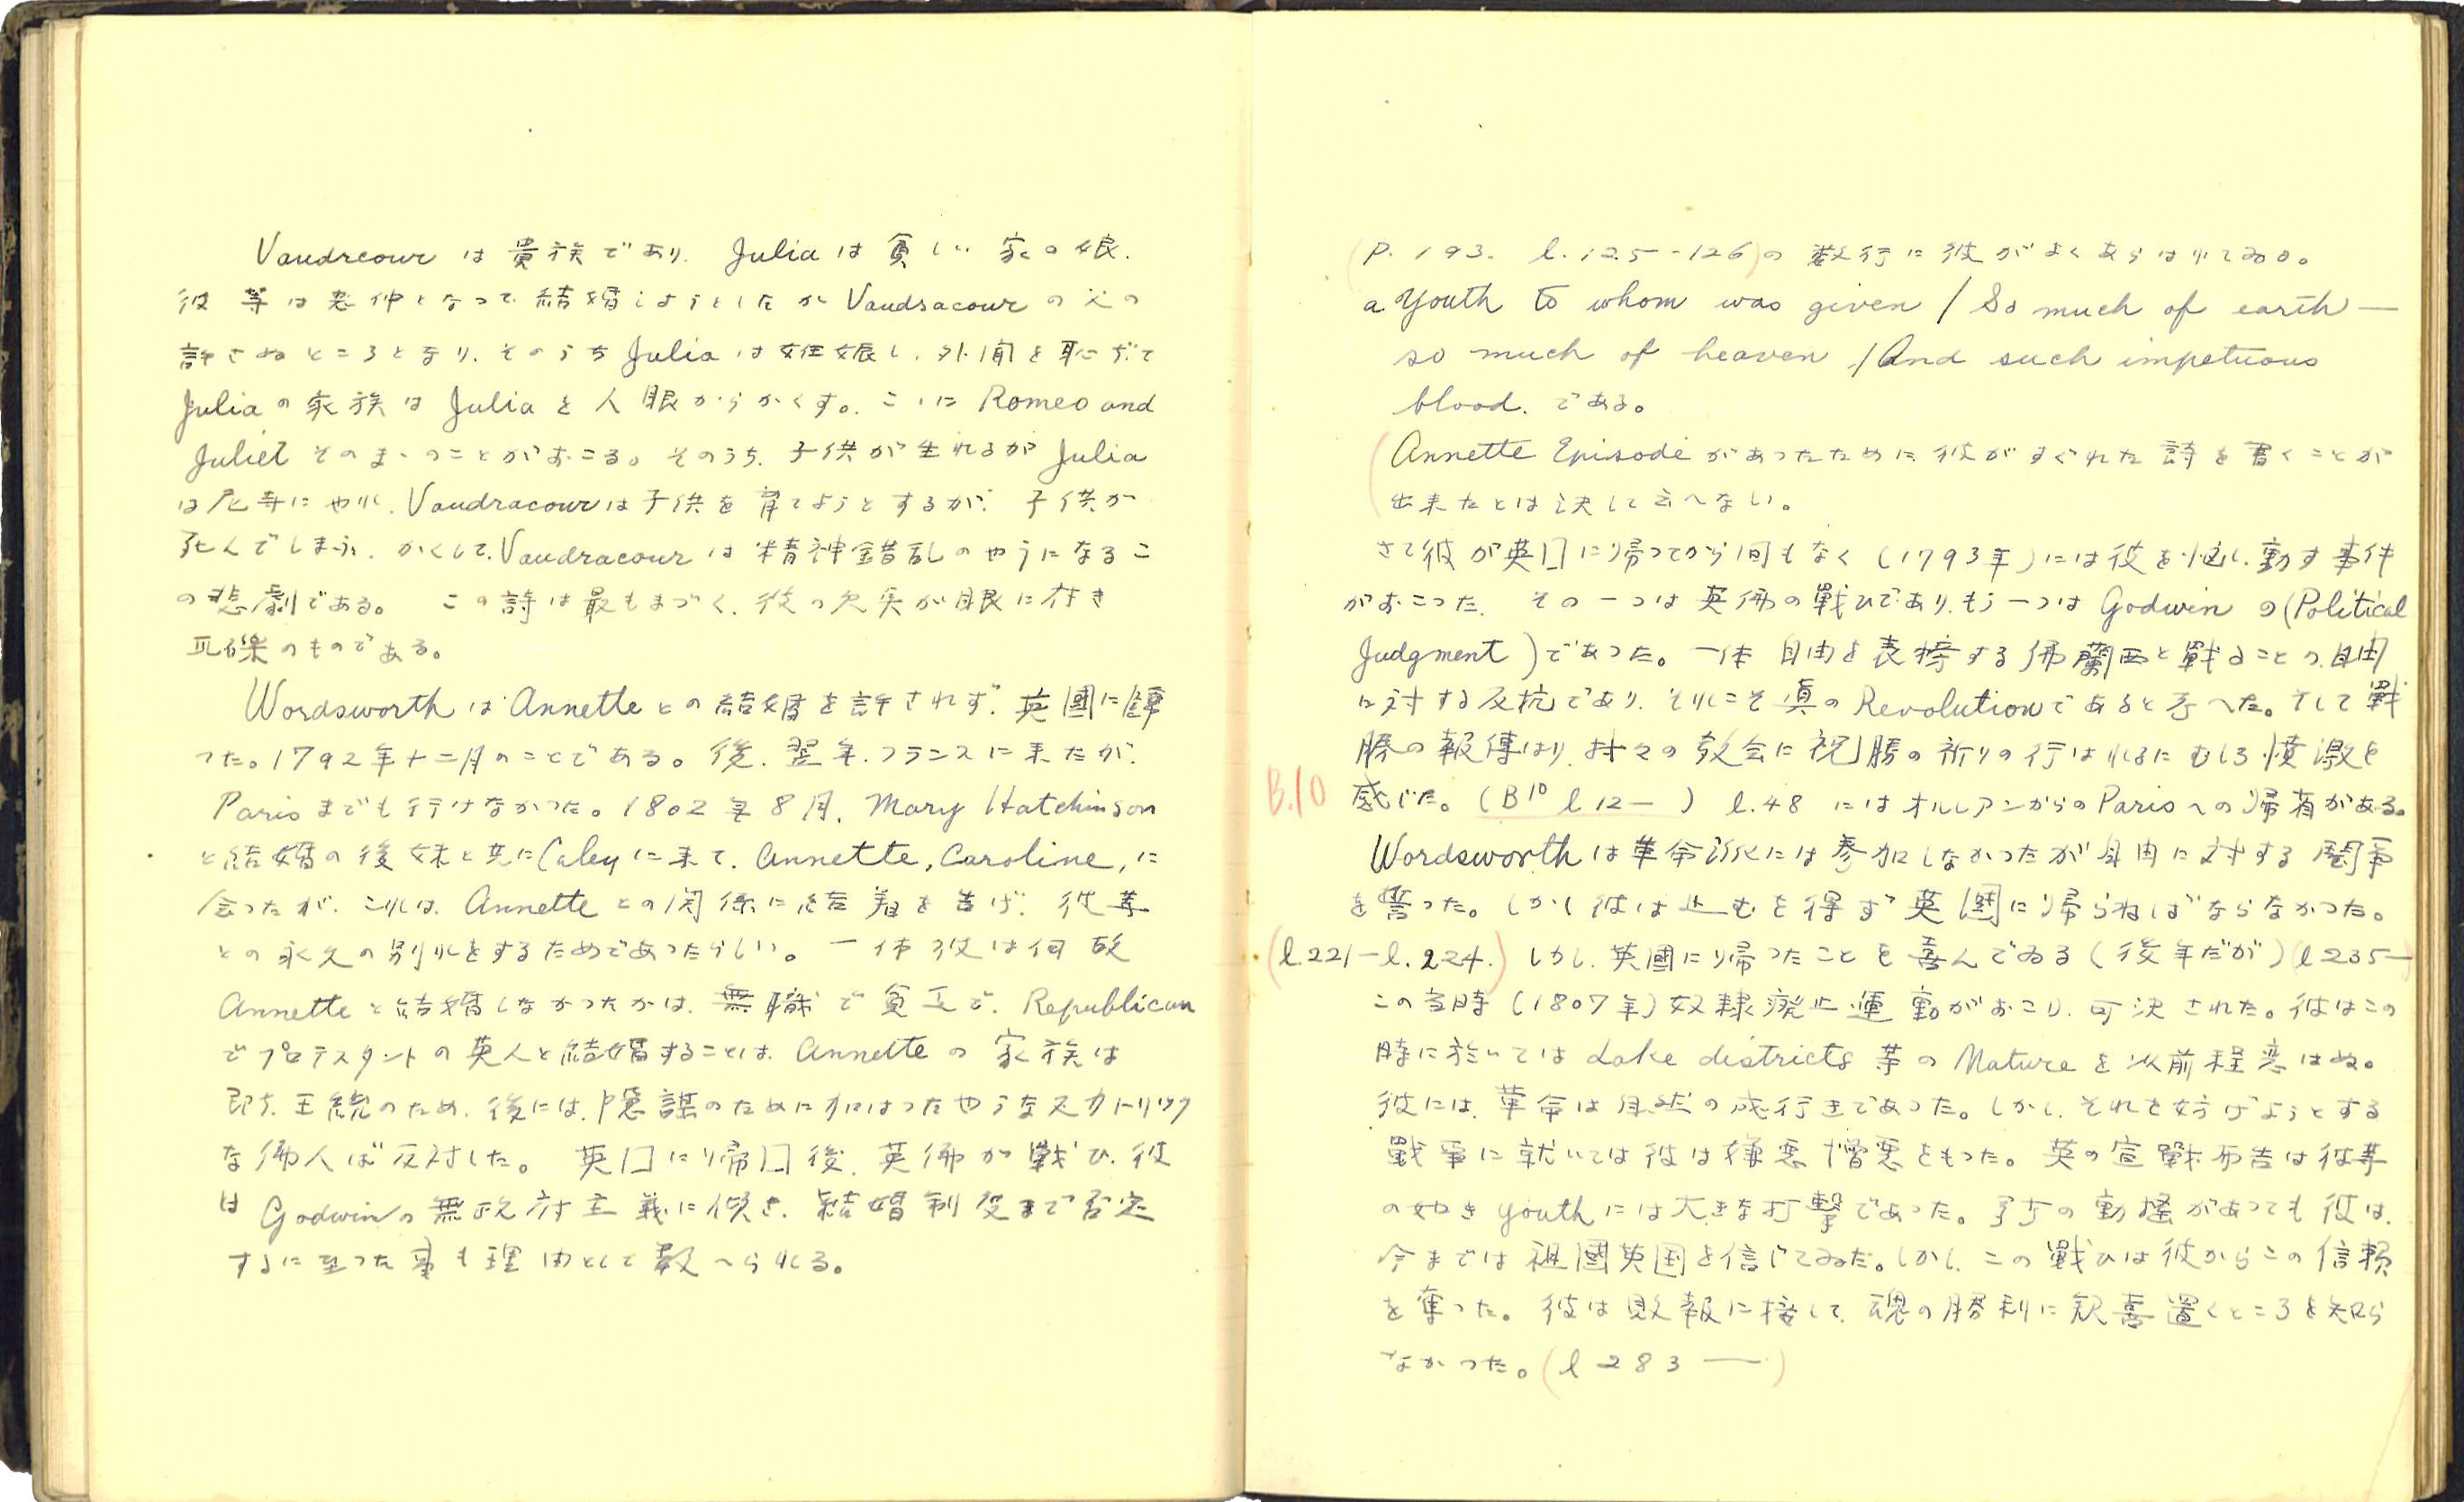 Vaudrcour は貴族であり、Juliaは貧しい家の娘.
彼等は恋仲となって結婚しようとしたが Vaudsacour の父の
許さぬところとなり、そのうち Julia は妊娠し、外聞を恥ぢて
Juliaの家族は Julia を人眼からかくす。こゝに Romeo and
Juliet そのまゝのことがおこる。そのうち、子供が生れるが Julia
は尼寺にやれ、Vaudracourは子供を育てようとするが、子供が
死んでしまふ、かくして、Vaudracour は精神錯乱のやうになるこ
の悲劇である。 この詩は最もまづく、彼の欠点が眼に付き
瓦礫のものである。
Wordsworth は Annette との結婚を許されず、英國に帰
つた。1792年十二月のことである。後、翌年、フランスに来たが、
Parisまでも行けなかつた。1802年8月、Mary Hatchinson
と結婚の後妹と共に Caley に来て、Annette, Caroline, に
会つたが、これは、Annette との関係に結着を告げ、彼等
との永久の別れをするためであつたらしい。一体彼は何故
Annette と結婚しなかつたかは、無職で貧乏で、Republican
でプロテスタントの英人と結婚することは、Annette の家族は
即ち、王統のため、後には、陰謀のために加はつたやうなカトリック
な佛人は反対した。 英囗に帰囗後、英佛が戦ひ、彼
は Godwinの無政府主義に傾き、結婚制度まで否定
するに至つた事も理由として数へられる。
(P. 193. l. 125--126)の数行に彼がよくあらはれてゐる。
a Youth to whom was given / So much of earth—
so much of heaven / And such impetuous
blood. である。
(Annette Episode があつたために彼がすぐれた詩を書くことが
出来たとは決して云へない。
さて彼が英囗に帰つてから間もなく(1793年)には彼を 動す事件
がおこつた. その一つは英佛の戦ひであり、もう一つは Godwin の(Political
Judgment)であつた。一体自由を表榜する佛蘭西と戦ふことの、自由
に対する反抗であり、それこそ真の Revolutionであると考へた。そして戦
勝の報傳はり、村々の教会に祝勝の祈りの行はれるにむしろ憤激を
B.10 感じた。(B10 l 12— ) l.48 にはオルレアンからのParisへの帰着がある。
Wordsworthは革命派には参加しなかつたが自由に対する鬪爭
を誓つた。しかし彼は止むを得ず英國に帰らねばならなかつた。
(l.221-l.224.) しかし、英國に帰つたことを喜んでゐる(後年だが)(l 235—
この当時(1807年)奴隷廃止運動がおこり、可決された。彼はこの
時に於いては Lake districts 等の Nature を以前程恋はぬ。
彼には、革命は自然の成行きであつた。しかし、それを妨げようとする
戰爭に就いては彼は嫌悪憎悪をもつた。英の宣戰布告は彼等
の如き youth には大きな打撃であつた。 の動揺があつても彼は、
今までは祖國英国を信じてゐた。しかし、この戰ひは彼からこの信頼
を奪つた。彼は敗報に接して、魂の勝利に歓喜置くところを知ら
なかつた。(l 283 —)